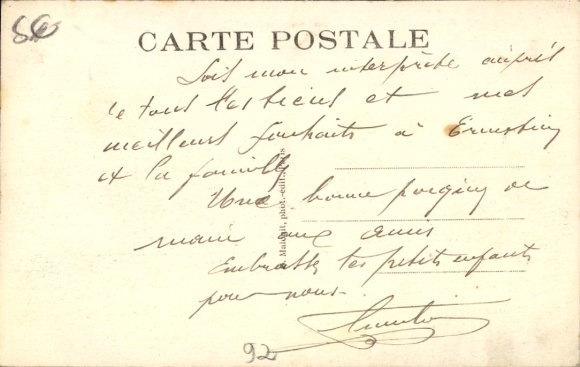 86
CARTE POSTALE
Sois mon interprète auprès
de tous les tiens et mes
meilleurs souhaits à
et la famille
Une bonne poignée de
main aux amis
Embrasse les petits enfants
pour nous.
phot.-édit., Paris
92